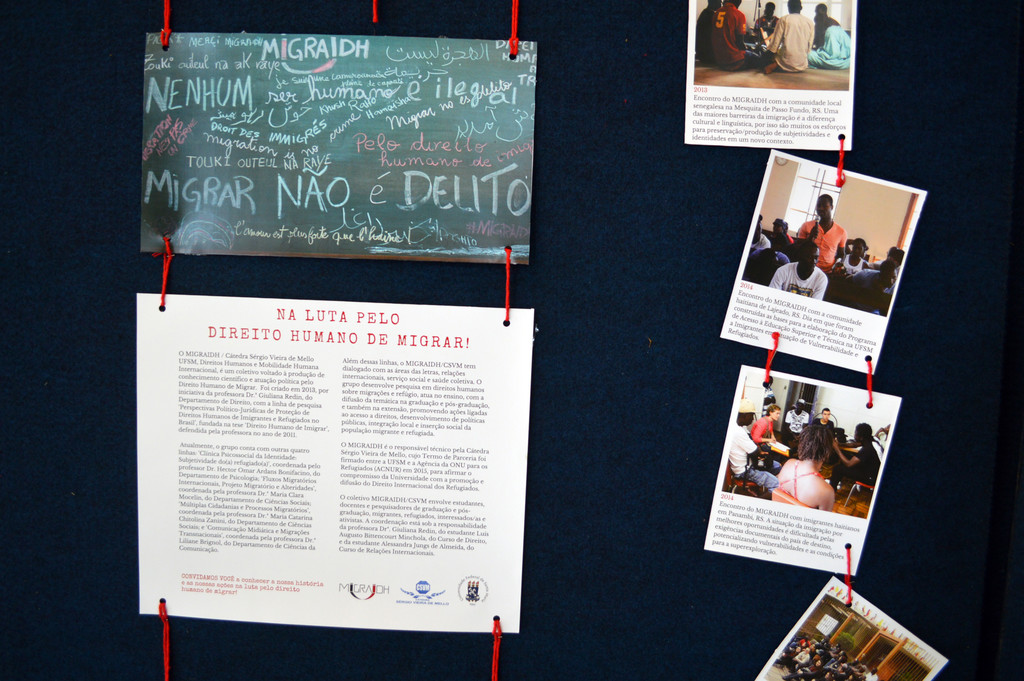 MIGRAIDH
NENHUM
ser humano é ilegal
DROIT DES IMMIGRÉS
migration is no
Pelo direito
humano de migrar
TOUKI OUTEUL NA RAYE
MIGRAR NÃO é DELITO
l'amour est plus forte que l'haine
NA LUTA PELO
DIREITO HUMANO DE MIGRAR!
O MIGRAIDH / Cátedra Sérgio Vieira de Mello
UFSM, Direitos Humanos e Mobilidade Humana
Internacional, é um coletivo voltado à produção de
conhecimento científico e atuação política pelo
Direito Humano de Migrar. Foi criado em 2013, por
iniciativa da professora Dr.ª Giuliana Redin, do
Departamento de Direito, com a linha de pesquisa
'Perspectivas Político-Jurídicas de Proteção de
Direitos Humanos de Imigrantes e Refugiados no
Brasil', fundada na tese 'Direito Humano de Imigrar',
defendida pela professora no ano de 2011.
Atualmente, o grupo conta com outras quatro
linhas: 'Clínica Psicossocial da Identidade:
Subjetividade do(a) refugiado(a)', coordenada pelo
professor Dr. Hector Omar Ardans Bonifacino, do
Departamento de Psicologia, 'Fluxos Migratórios
Internacionais, Projeto Migratório e Alteridades',
coordenada pela professora Dr.ª Maria Clara
Mocelin, do Departamento de Ciências Sociais;
'Múltiplas Cidadanias e Processos Migratórios',
coordenada pela professora Dr.ª Maria Catarina
Chitolina Zanini, do Departamento de Ciências
Sociais; e 'Comunicação Midiática e Migrações
Transnacionais', coordenada pela professora Dr.ª
Liliane Brignol, do Departamento de Ciências da
Comunicação.
Além dessas linhas, o MIGRAIDH/CSVM tem
dialogado com as áreas das letras, relações
internacionais, serviço social e saúde coletiva. O
grupo desenvolve pesquisa em direitos humanos
sobre migrações e refúgio, atua no ensino, com a
difusão da temática na graduação e pós-graduação,
e também na extensão, promovendo ações ligadas
ao acesso a direitos, desenvolvimento de políticas
públicas, integração local e inserção social da
população migrante e refugiada.
O MIGRAIDH é o responsável técnico pela Cátedra
Sérgio Vieira de Mello, cujo Termo de Parceria foi
firmado entre a UFSM e a Agência da ONU para os
Refugiados (ACNUR) em 2015, para afirmar o
compromisso da Universidade com a promoção e
difusão do Direito Internacional dos Refugiados.
O coletivo MIGRAIDH/CSVM envolve estudantes,
docentes e pesquisadores de graduação e pós-
graduação, migrantes, refugiados, interessados/as e
ativistas. A coordenação está sob a responsabilidade
da professora Drª. Giuliana Redin, do estudante Luís
Augusto Bittencourt Minchola, do Curso de Direito,
e da estudante Alessandra Jungs de Almeida, do
Curso de Relações Internacionais.
CONVIDAMOS VOCÊ a conhecer a nossa história
e as nossas ações na luta pelo direito
humano de migrar!
MIGRAIDH
SÉRGIO VIEIRA DE MELLO
2013
Encontro do MIGRAIDH com a comunidade local
senegalesa na Mesquita de Passo Fundo, RS. Uma
das maiores barreiras da imigração é a diferença
cultural e linguística, por isso são muitos os esforços
para preservação/produção de subjetividades e
identidades em um novo contexto.
2014
Encontro do MIGRAIDH com a comunidade
haitiana de Lajeado, RS. Dia em que foram
construídas as bases para a elaboração do Programa
de Acesso à Educação Superior e Técnica na UFSM
a Imigrantes em situação de Vulnerabilidade e
Refugiados.
2014
Encontro do MIGRAIDH com imigrantes haitianos em
Panambi, RS. A situação da imigração por
melhores oportunidades é dificultada pelas
exigências documentais do país de destino,
potencializando vulnerabilidades e as condições
para a superexploração.